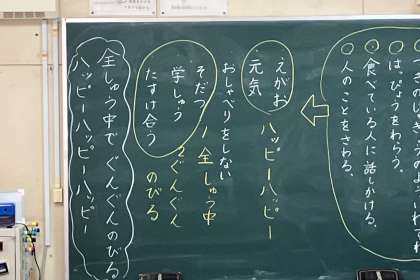 ○はっぴょうをわらう。
○食べている人に話しかける。
○人のことをさわる。
えがお
元気 ハッピーハッピー
おしゃべりをしない
そだつ 全しゅう中
学しゅう ぐんぐん
たすけ合う のびる
全しゅう中でぐんぐんのびる
ハッピーハッピーハッピー